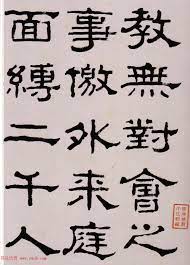 教無對會之
事徼外来庭
面縛二千人